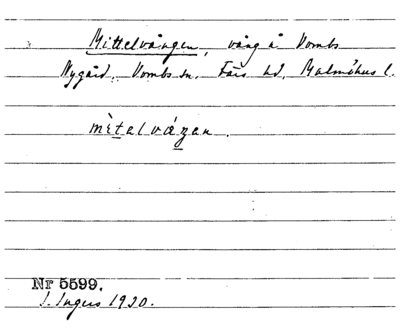 Mittelvången, vång å Vombs
Nygård, Vombs sn. Färs hd, Malmöhus l.
mìtalváŋan.
Nr 5599.
I. Ingers 1930.